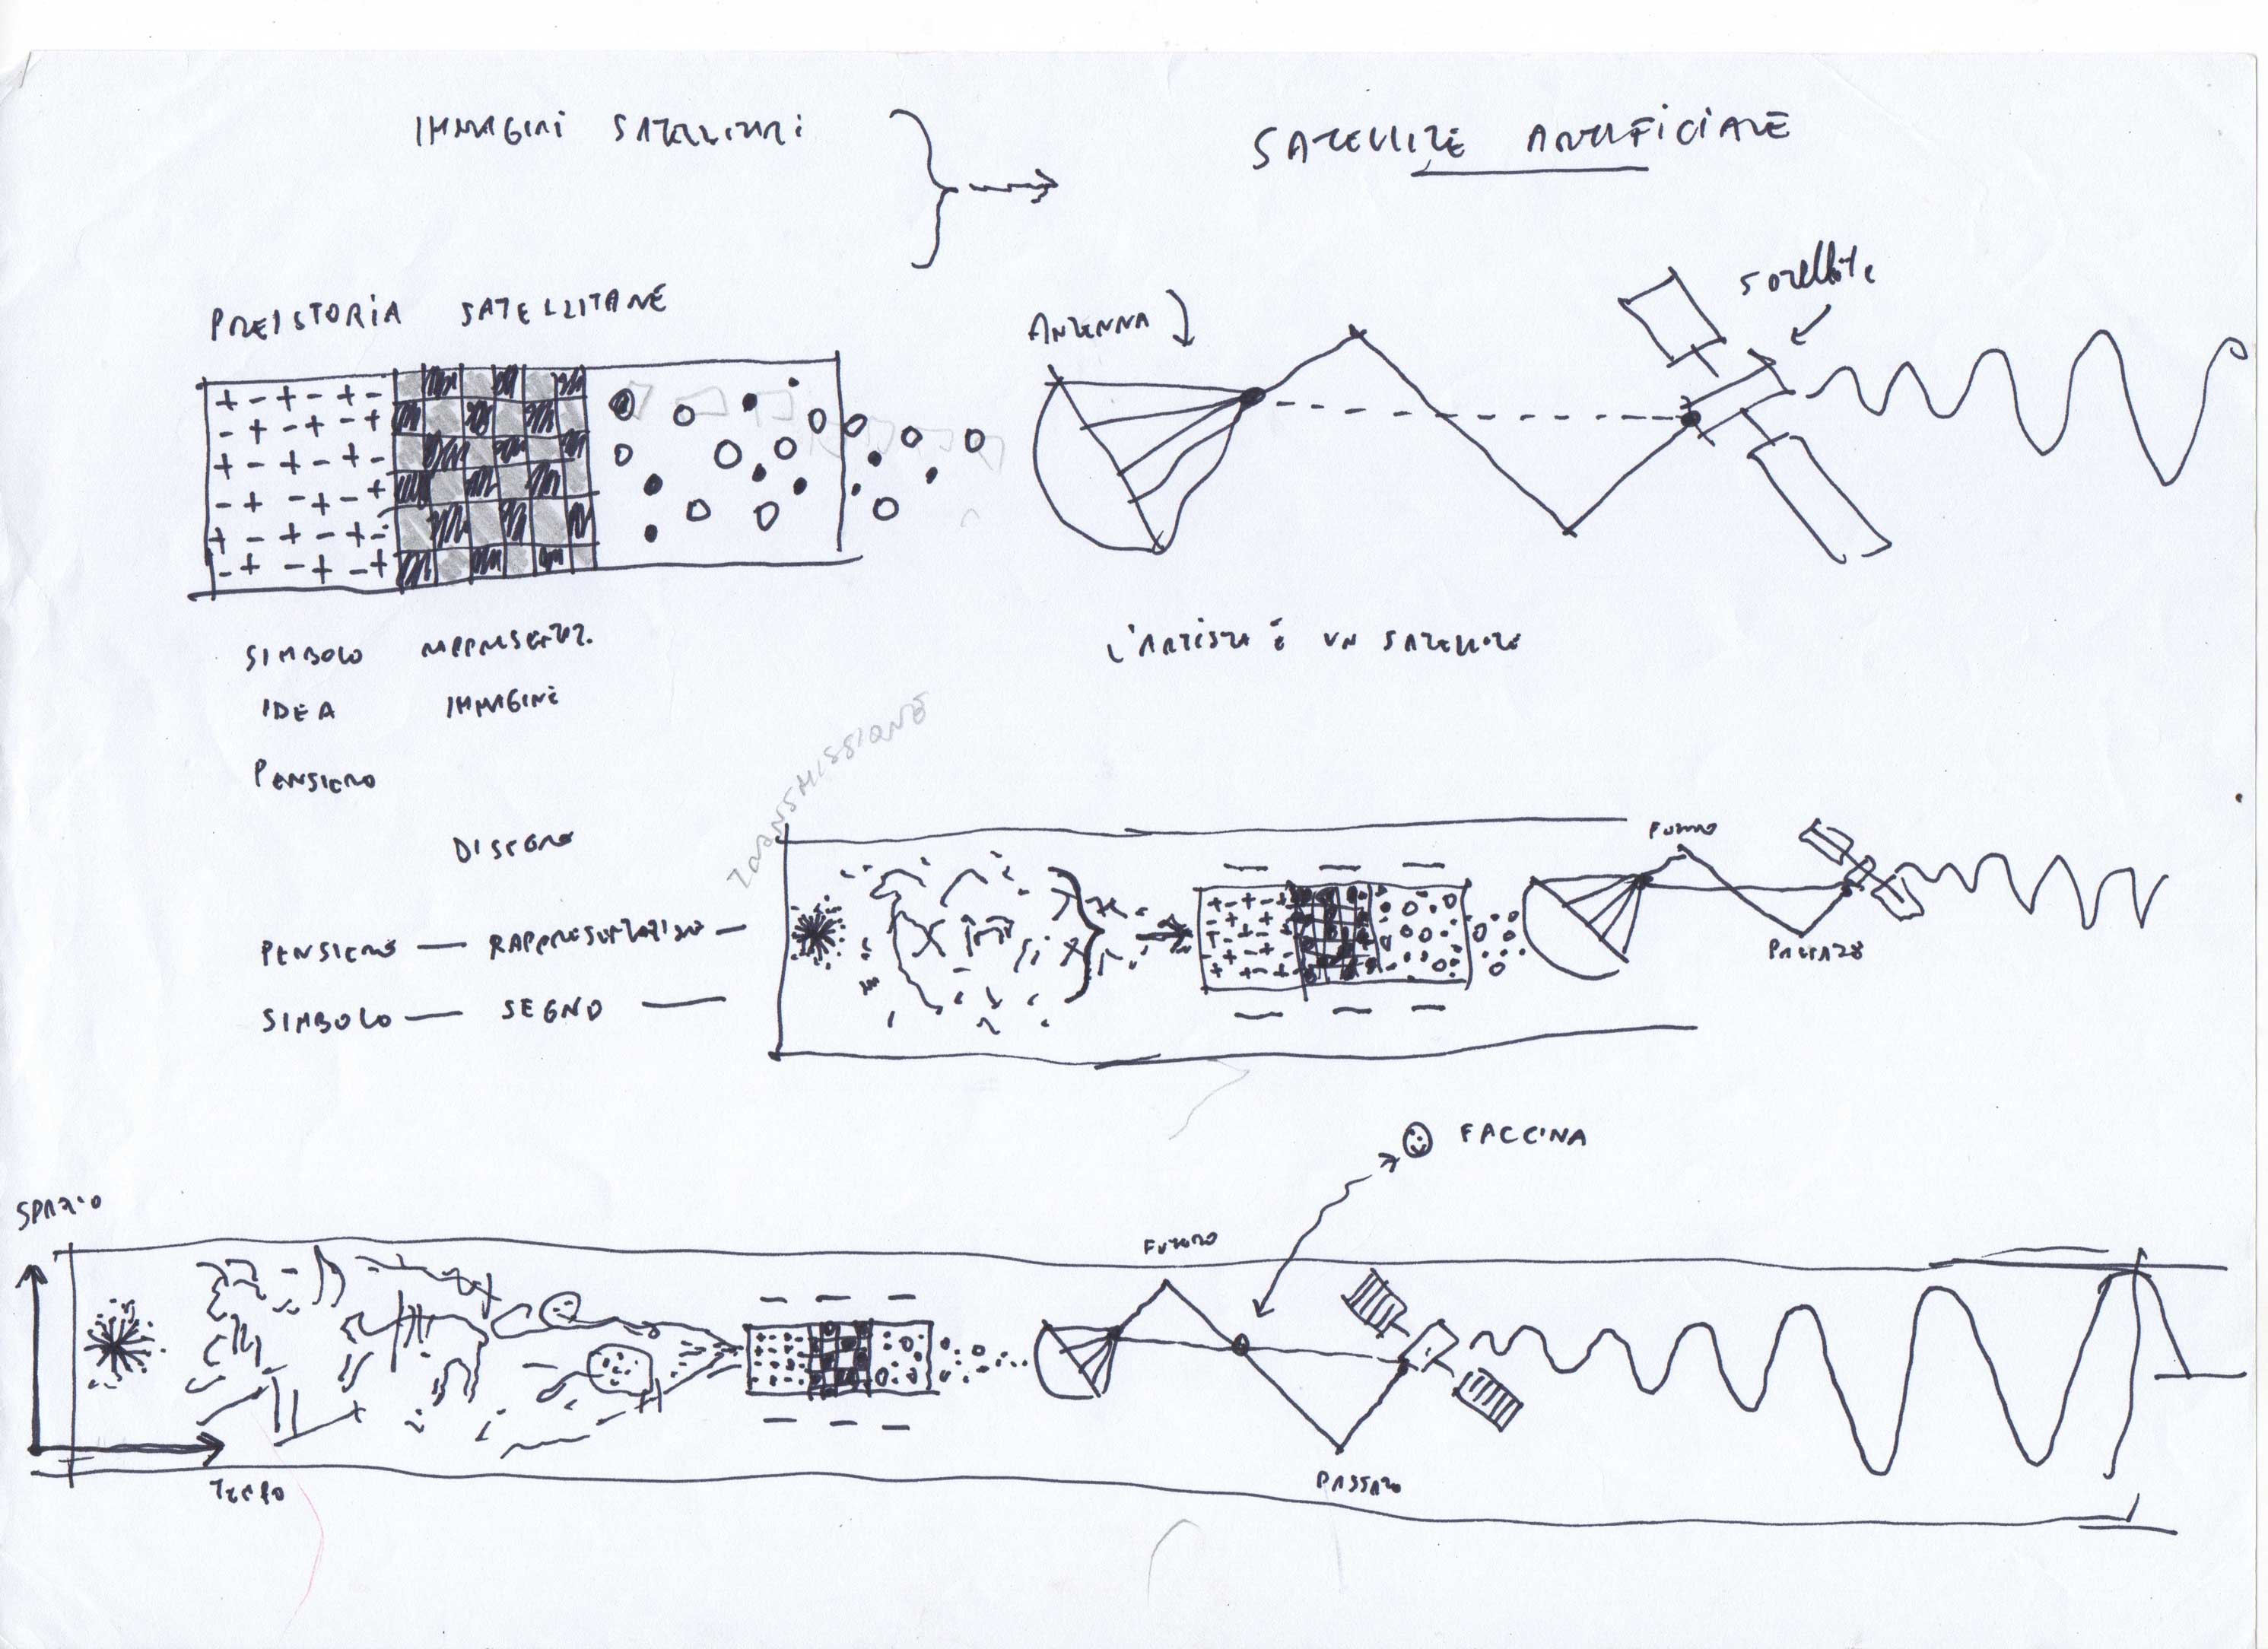 IMMAGINI SATELLITARI
SATELLITE ARTIFICIALE
satellite
PREISTORIA SATELLITARE
ANTENNA
SIMBOLO RAPPRESENTAZ.
L'ARTISTA È UN SATELLITE
IDEA IMMAGINE
PENSIERO
TRASMISSIONE
DISEGNO
FUTURO
PENSIERO — RAPPRESENTAZIONE —
PASSATO
SIMBOLO — SEGNO —
FACCINA
SPAZIO
FUTURO
PASSATO
TEMPO